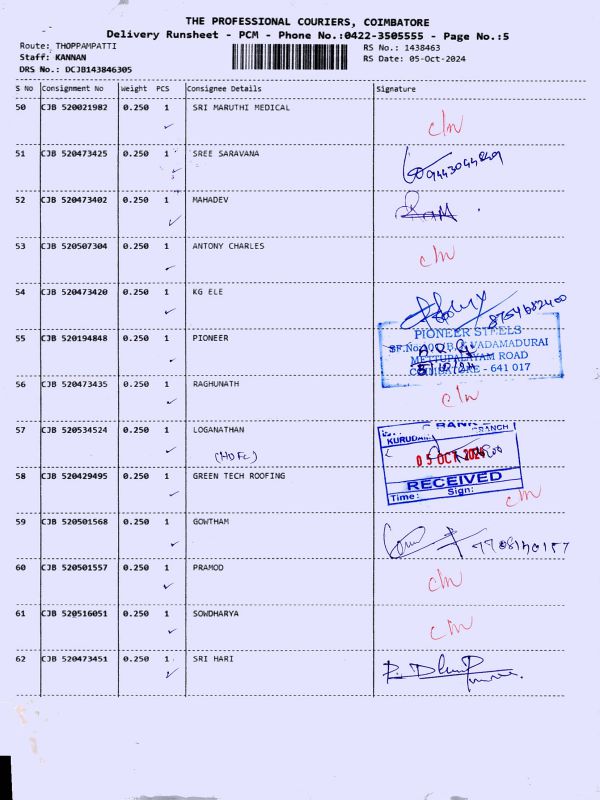 THE PROFESSIONAL COURIERS, COIMBATORE
Delivery Runsheet - PCM - Phone No.:0422-3505555 - Page No.:5
Route: THOPPAMPATTI RS No.: 1438463
Staff: KANNAN RS Date: 05-Oct-2024
DRS No.: DCJB143846305
S No Consignment No Weight PCS Consignee Details Signature
50 CJB 520021982 0.250 1 SRI MARUTHI MEDICAL
c/n
51 CJB 520473425 0.250 1 SREE SARAVANA
52 CJB 520473402 0.250 1 MAHADEV
53 CJB 520507304 0.250 1 ANTONY CHARLES
c/n
54 CJB 520473420 0.250 1 KG ELE
8754682400
PIONEER STEELS
55 CJB 520194848 0.250 1 PIONEER
VADAMADURAI
METTUPALAYAM ROAD
COIMBATORE - 641 017
56 CJB 520473435 0.250 1 RAGHUNATH
c/n
57 CJB 520534524 0.250 1 LOGANATHAN
(HDFC)
BRANCH
05 OCT 2024
RECEIVED
Time: Sign:
58 CJB 520429495 0.250 1 GREEN TECH ROOFING
c/n
59 CJB 520501568 0.250 1 GOWTHAM
7708140157
60 CJB 520501557 0.250 1 PRAMOD
c/n
61 CJB 520516051 0.250 1 SOWDHARYA
c/n
62 CJB 520473451 0.250 1 SRI HARI